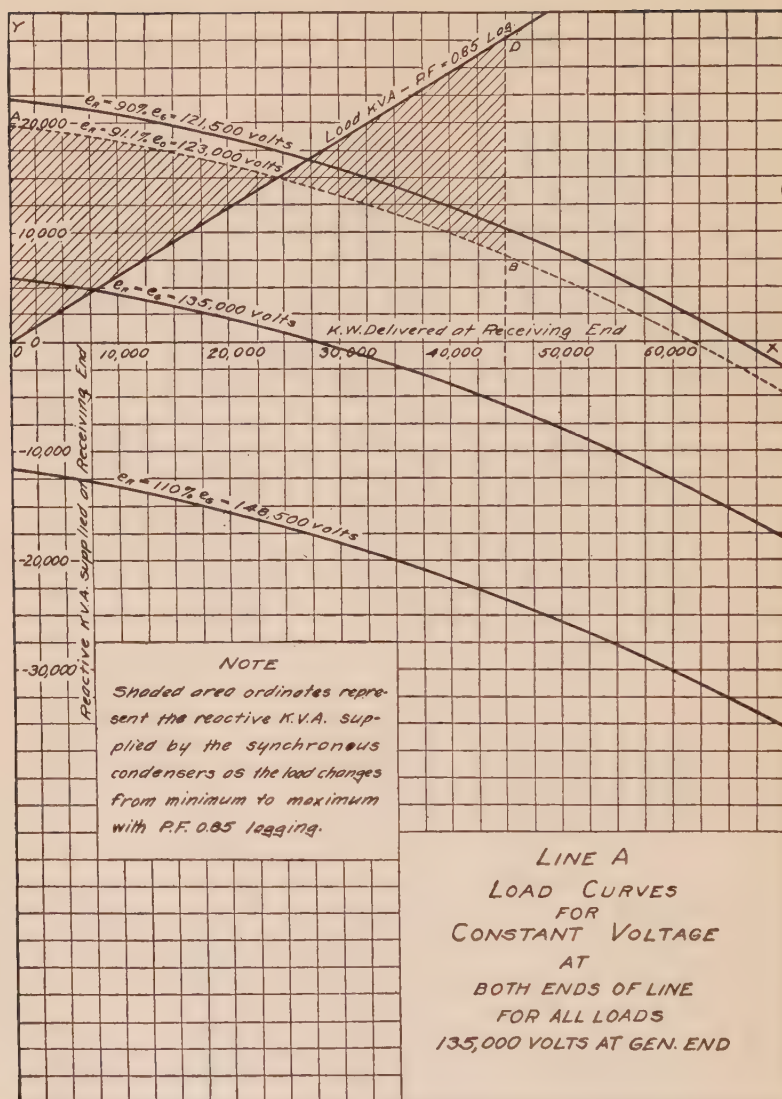 Y
Load KVA - P.F. = 0.85 Lag.
D
e_R = 90% e_G = 121,500 volts
A
20,000
e_R = 91.1% e_G = 123,000 volts
10,000
B
e_R = e_G = 135,000 volts
K.W. Delivered at Receiving End
X
0
0 10,000 20,000 30,000 40,000 50,000 60,000
Reactive K.V.A. supplied at Receiving End
-10,000
e_R = 110% e_G = 148,500 volts
-20,000
-30,000
NOTE
Shaded area ordinates repre-
sent the reactive K.V.A. sup-
plied by the synchronous
condensers as the load changes
from minimum to maximum
with P.F. 0.85 lagging.
LINE A
LOAD CURVES
FOR
CONSTANT VOLTAGE
AT
BOTH ENDS OF LINE
FOR ALL LOADS
135,000 VOLTS AT GEN. END